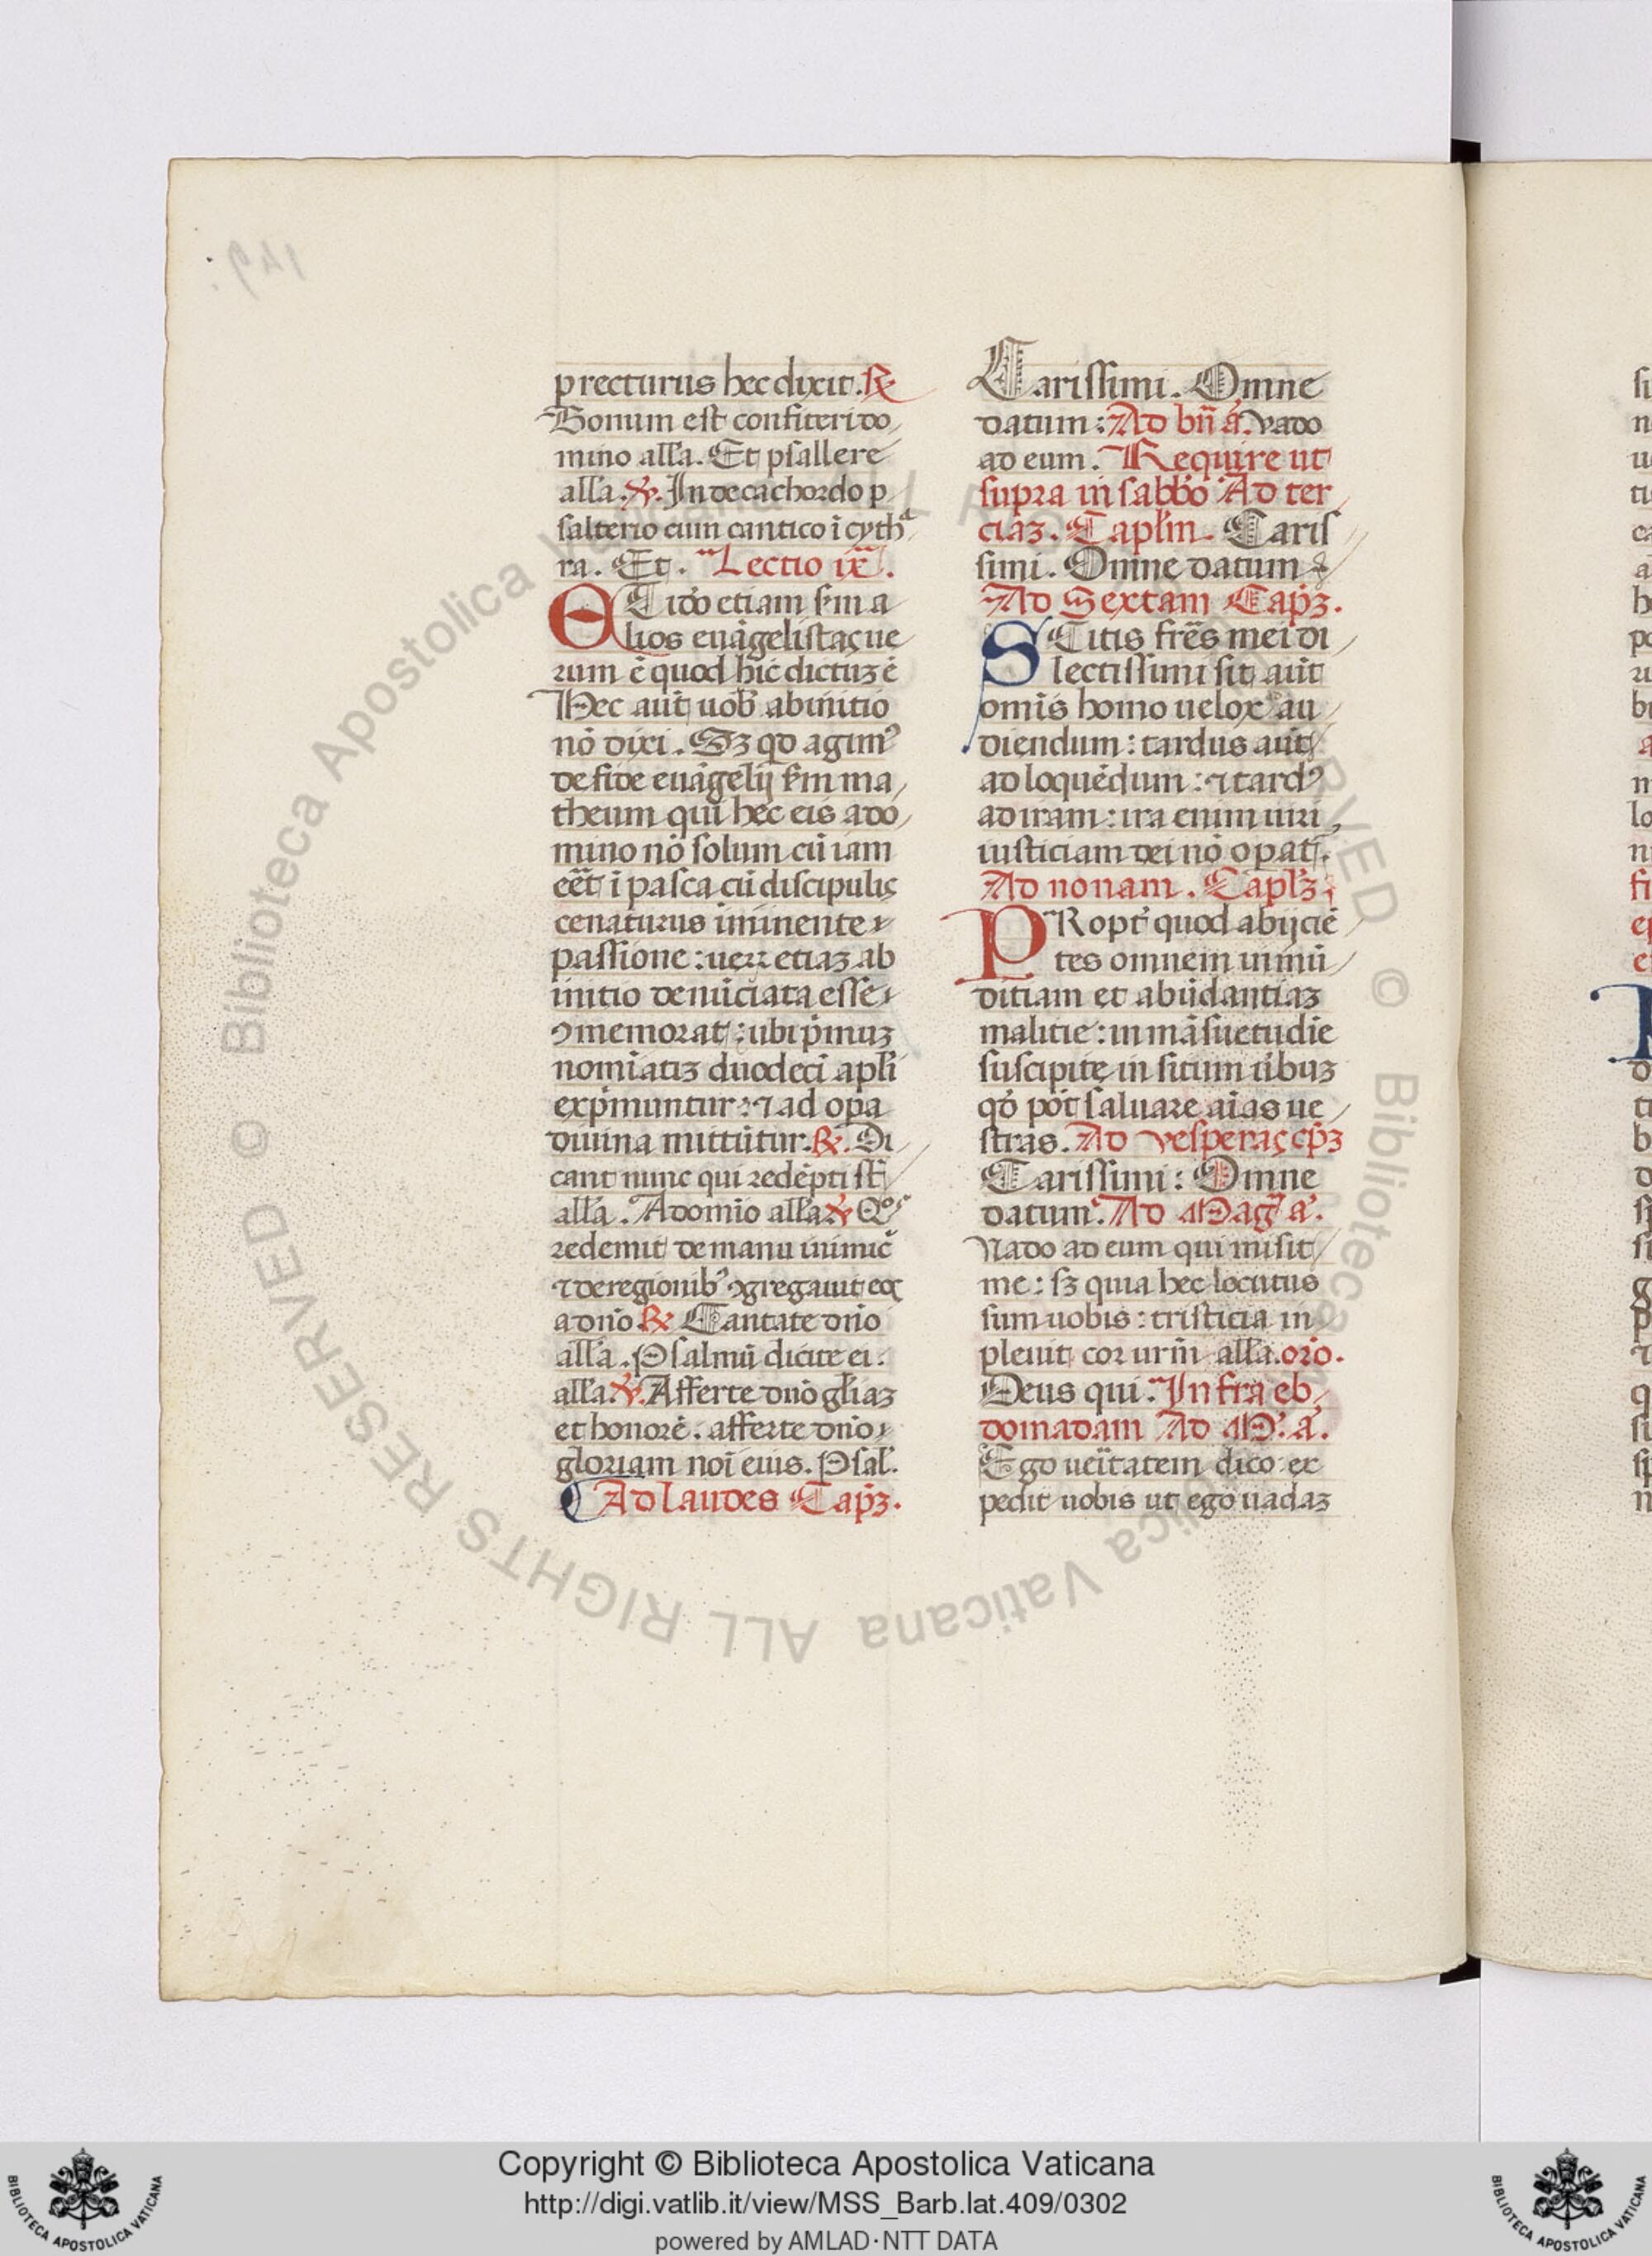 precturus hec dixit. ℟
Bonum est confiteri do
mino alľa. Et psallere
alľa. ℣. In decachordo p
salterio cum cantico ī cyth
ra. Et. Lectio ix.
QUido etiam sm̄ a
lios euāgelistas ue
rum ē quod hic dictuꝫ ē
Hec aūt uob̄ ab initio
nō dixi. Sꝫ qd agimꝰ
de fide euāgelij sm̄ ma
theum qui hec eis a do
mino nō solum cū iam
eēt ī pasca cū discipulis
cenaturus iminente
passione: ueꝝ etiaꝫ ab
initio denūciata esse
ꝯmemorat: ubi p̄muꝫ
nomīatiꝫ duodecī apľi
exp̄muntur: ⁊ ad oꝑa
diuina mittūtur. ℟. Di
cant nunc qui redēpti st̄
alľa. A domīo alľa ℣ Qͦs
redemit de manu inimic̄
⁊ de regionibꝰ ꝯgregauit eos
a dn̄o ℟ Cantate dn̄o
alľa. Psalmū dicite ei.
alľa ℣. Afferte dn̄o gľiaꝫ
et honorē. afferte dn̄o
gloriam noī eius. Psal.
Ad laudes Cap̄ꝫ.
Carissimi. Omne
datum: Ad bn̄ ā. Vado
ad eum. Require ut
supra in sabbō Ad ter
ciaꝫ. Capľm. Caris
simi. Omne datum
Ad Sextam Cap̄ꝫ.
SCitis fr̄es mei di
lectissimi sit aūt
omīs homo uelox au
diendum: tardus aūt
ad loquēdum: ⁊ tardꝰ
ad iram: ira enim uiri
iusticiam dei nō oꝑat.
Ad nonam. Capľꝫ
PRopt̄ quod abijciē
tes omnem inmū
ditiam et abūdantiaꝫ
malitie: in māsuetudīe
suscipite insitum ūbuꝫ
qd̄ pōt saluare aīas ue
stras. Ad vesperas cp̄ꝫ
Carissimi: Omne
datum. Ad Maḡ ā.
Vado ad eum qui misit
me: sꝫ quia hec locutus
sum uobis: tristicia in
pleuit cor ur̄m alľa. oro.
Deus qui. Infra eb
domadam Ad M. ā.
Ego uēitatem dico ex
pedit uobis ut ego uadaꝫ
Copyright © Biblioteca Apostolica Vaticana
http://digi.vatlib.it/view/MSS_Barb.lat.409/0302
powered by AMLAD·NTT DATA
© Biblioteca Apostolica Vaticana ALL RIGHTS RESERVED
BIBLIOTECA APOSTOLICA VATICANA
BIBLIOTECA APOSTOLICA VATICANA